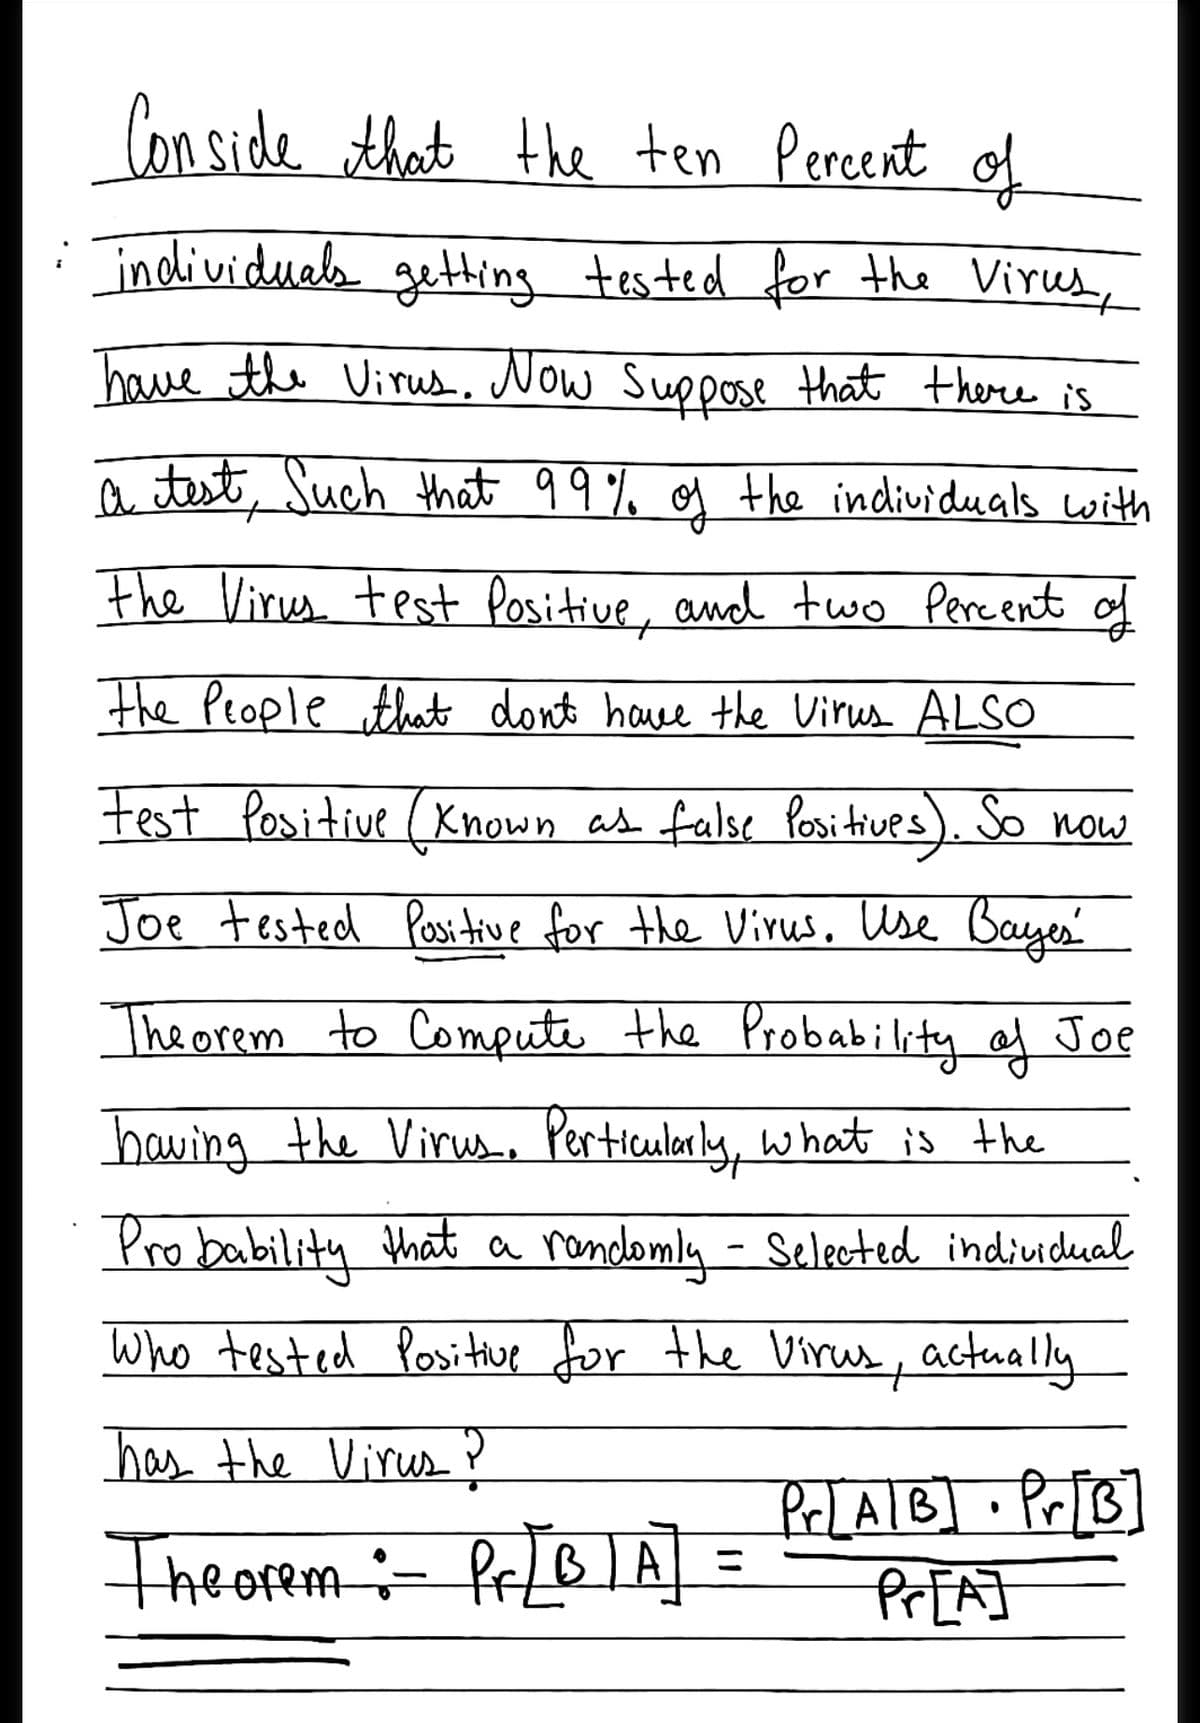 Conside that the ten Percent of
individuals getting tested for the Virus,
have the Virus. Now Suppose that there is
a test, Such that 99% of the individuals with
the Virus test Positive, and two Percent of
the People that dont have the Virus ALSO
test Positive (Known as false Positives). So now
Joe tested Positive for the Virus. Use Bayes'
Theorem to Compute the Probability of Joe
having the Virus. Perticularly, what is the
Probability that a randomly - Selected individual
Who tested Positive for the Virus, actually
has the Virus?
Theorem :- Pr[B|A] = Pr[A|B] · Pr[B]
Pr[A]